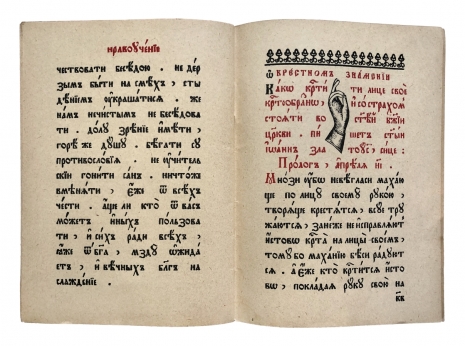 нравоꙋче́нїе
чествовати бесѣ́дою . не де́р
зымъ бы́ти на смѣ́хъ , сты
дѣ́нїемъ ᲂу҆краша́тисѧ . же
на́мъ нечи́стымъ не бесѣ́дова
ти . до́лꙋ зрѣ́нїе и҆мѣ́ти ,
горѣ́ же дꙋ́шꙋ . бѣ́гати сꙋ
противосло́вїѧ . не ᲂу҆чи́тель
скїй гони́ти са́нъ . ничто́же
вмѣнѧ́ти , є҆́же ѿ всѣ́хъ
че́сти . а҆́ще ли кто̀ ѿ ва́съ
мо́жетъ и҆ны́хъ по́льзова
ти , и҆ си́хъ ра́ди всѣ́хъ ,
ᲂу҆́же ѿ бг҃а , мздꙋ̀ ѡ҆жида́
етъ , и҆ вѣ́чныхъ бл҃гъ на
слажде́нїе .
ѡ҆ кре́стномъ зна́менїи
Ка́кѡ кр҇ти́ти лицѐ своѐ
кр҇тоѡбра́знѡ , и҆ со стра́хомъ
стоѧ́ти во ст҃ѣ́й бж҃їей
цр҃кви . пи́шетъ ст҃ы́й
і҆ѡа́ннъ златоꙋ́стъ , си́це :
Проло́гъ , а҆прѣ́лѧ и҃і .
Мно́зи ᲂу҆́бѡ невѣ́гласи маха́ю
ще по лицꙋ̀ своемꙋ̀ рꙋко́ю ,
творѧ́ще кре́стѧтсѧ , всꙋ́е трꙋ
жа́ютсѧ , зане́же не и҆справлѧ́ютъ
и҆́стовѡ кр҇та̀ на лицы̀ свое́мъ ,
томꙋ́ бо маха́нїю бѣ́си ра́дꙋют
сѧ . а҆ є҆́же кто̀ кр҇ти́тсѧ и҆́сто
вѡ , поклада́ѧ рꙋ́кꙋ свою̀ на
кв